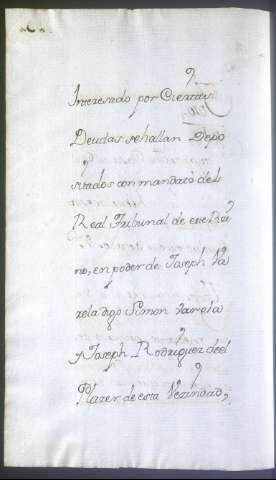 Interesado por Ciertas
Deudas sehallan Depo
sitados con mandato del
Real Tribunal de este Rei
no, en poder de Joseph Va
rela digo Simon Varela
y Joseph Rodriguez de el
Plazer de esta Vezindad,